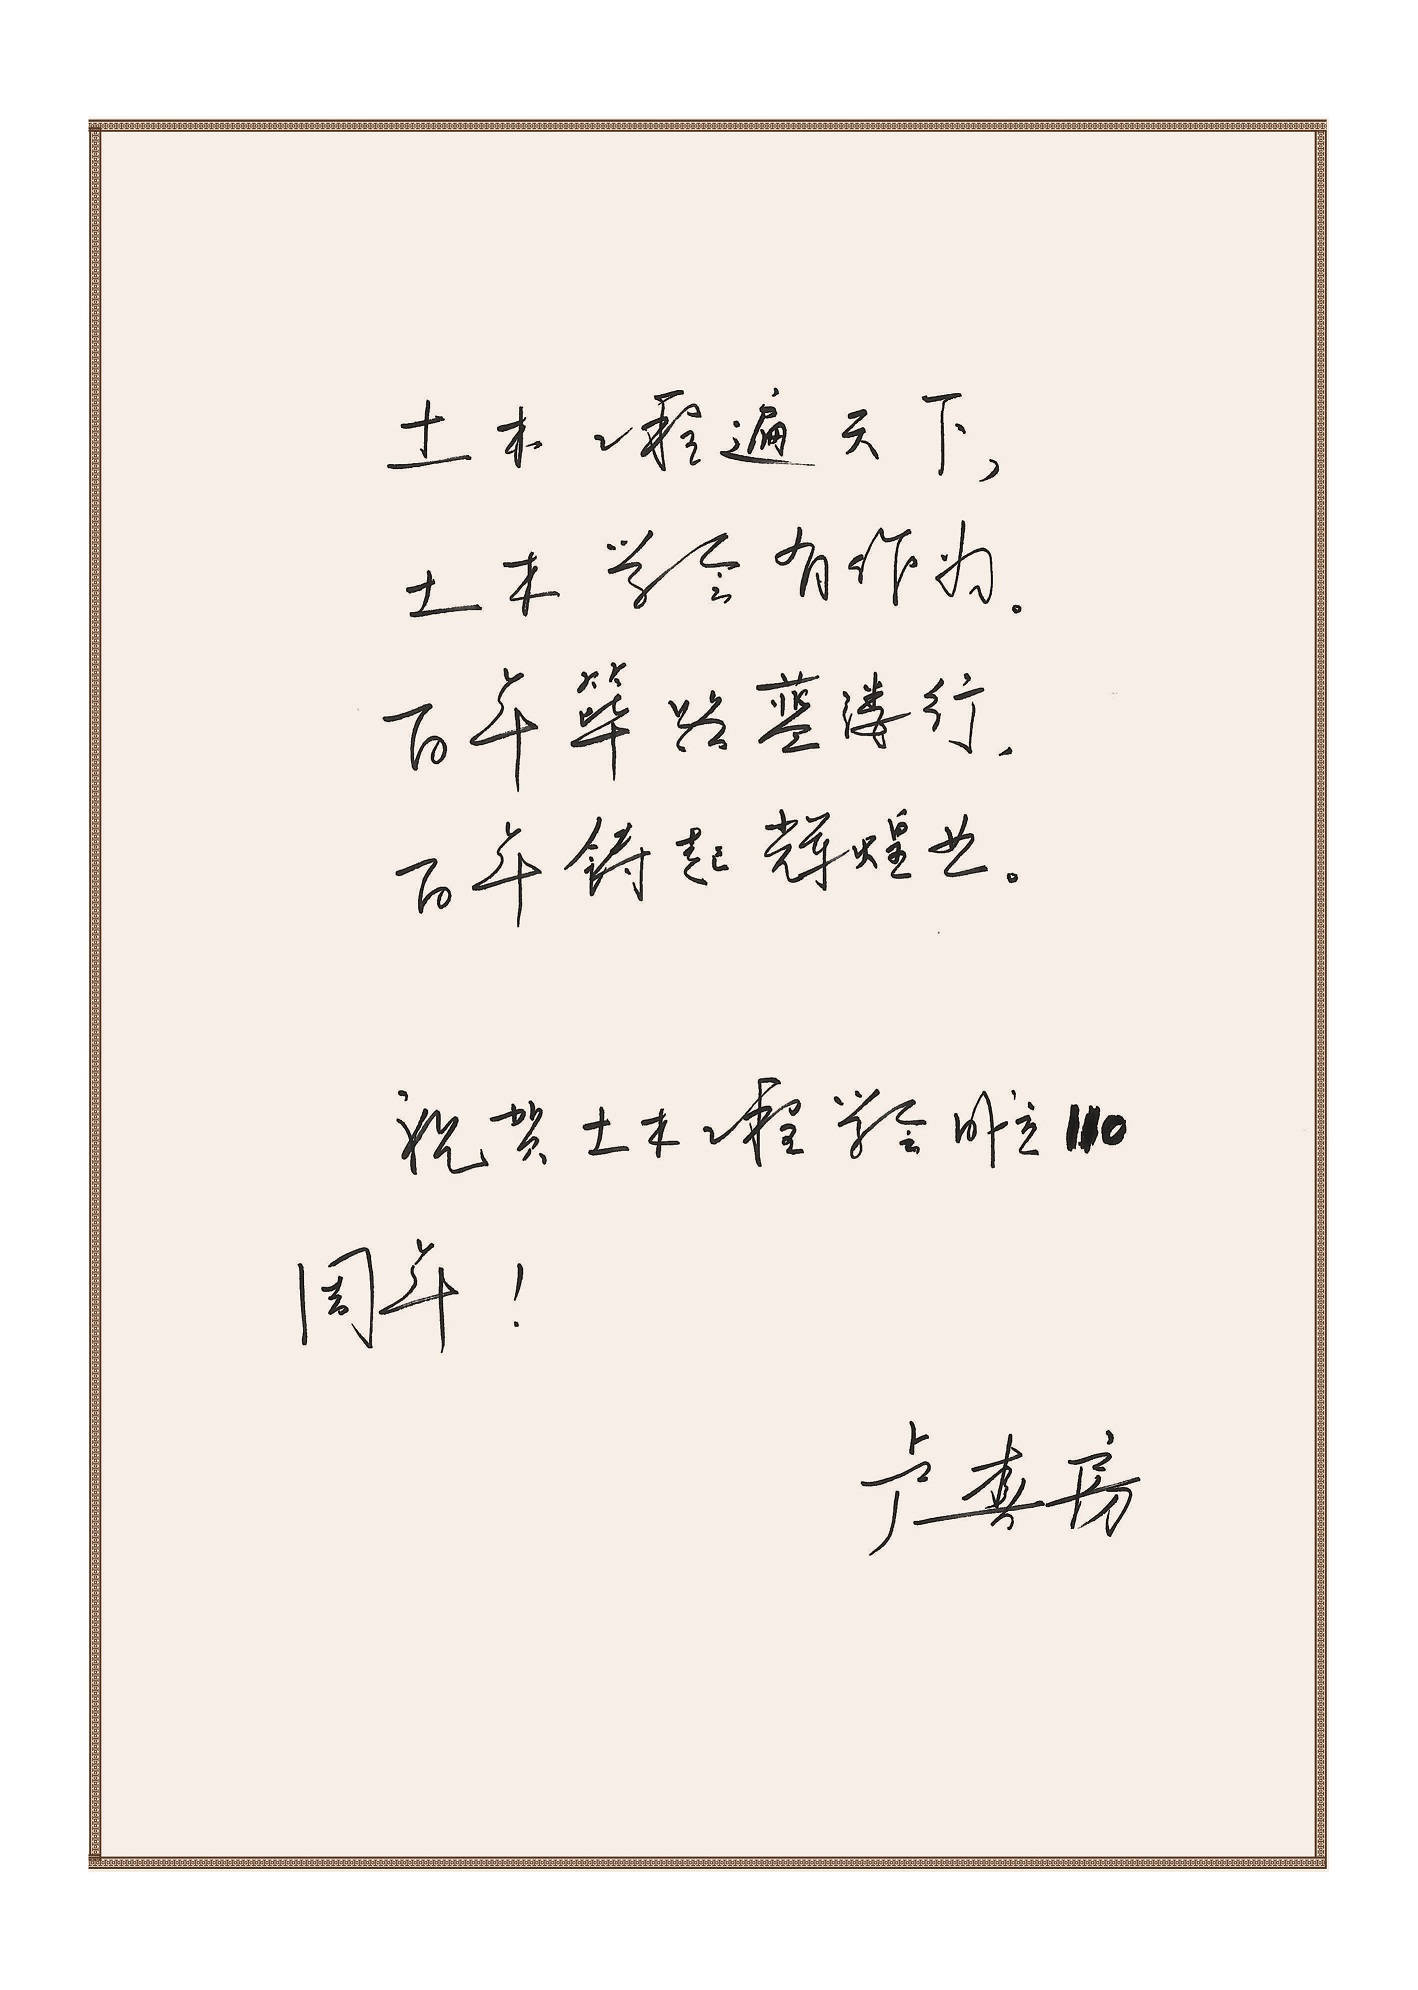 土木工程遍天下，
土木学会有作为。
百年筚路蓝缕行，
百年铸起辉煌业。
祝贺土木工程学会成立110
周年！
卢春房